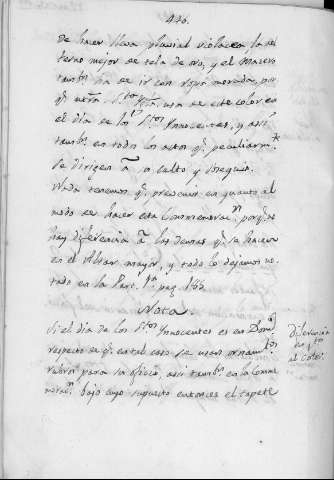 430.
de hacer lleva pluvial violacea, la del
terno mejor de tela de oro, y el Macero
tambⁿ ha de ir con ropa morada, por
qᵉ nrã Sᵗᵃ Yglª usa de este color en
el dia de los Sᵗᵒˢ Innocentes, y assi
tambⁿ en todos los actos qᵉ peculiarmᵗᵉ
se dirigen â su culto y obsequio.
Nada tenemos qᵉ prevenir en quanto al
modo de hacer esta Conmemoracⁿ porqᵉ no
hay diferencia â las demas qᵉ se hacen
en el Altar mayor, y todo lo dejamos no-
tado en la Part. 1ª pag. 162
Nota.
Si el dia de los Sᵗᵒˢ Innocentes es en Domᵒ
respecto de qᵉ en tal caso se usan ornamᵗᵒˢ
para la oficio, assi tambⁿ en la Conme
moracⁿ bajo cuyo supuesto entonces el tapete
Diferencia
en qᵗᵒ
al color.